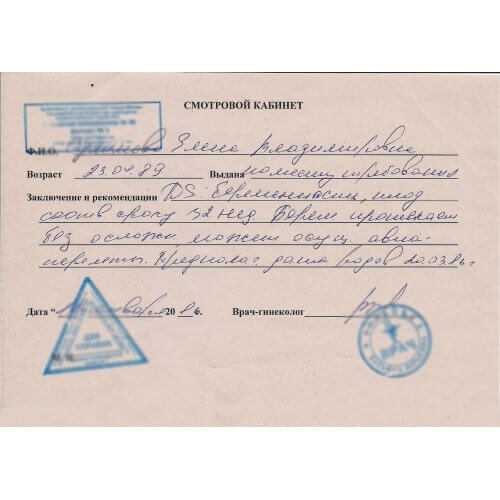 СМОТРОВОЙ КАБИНЕТ
Ф.И.О. Елена Владимировна
Возраст 23.04.89 Выдана по месту требования
Заключение и рекомендации DS: Беременность, плод
соотв сроку 32 нед Берем протекает
без осложн, может осущ. авиа-
перелеты. Предполаг дата родов 20.03.16г.
Дата “ 20 16г. Врач-гинеколог
ДЛЯ
СПРАВОК
ВРАЧ